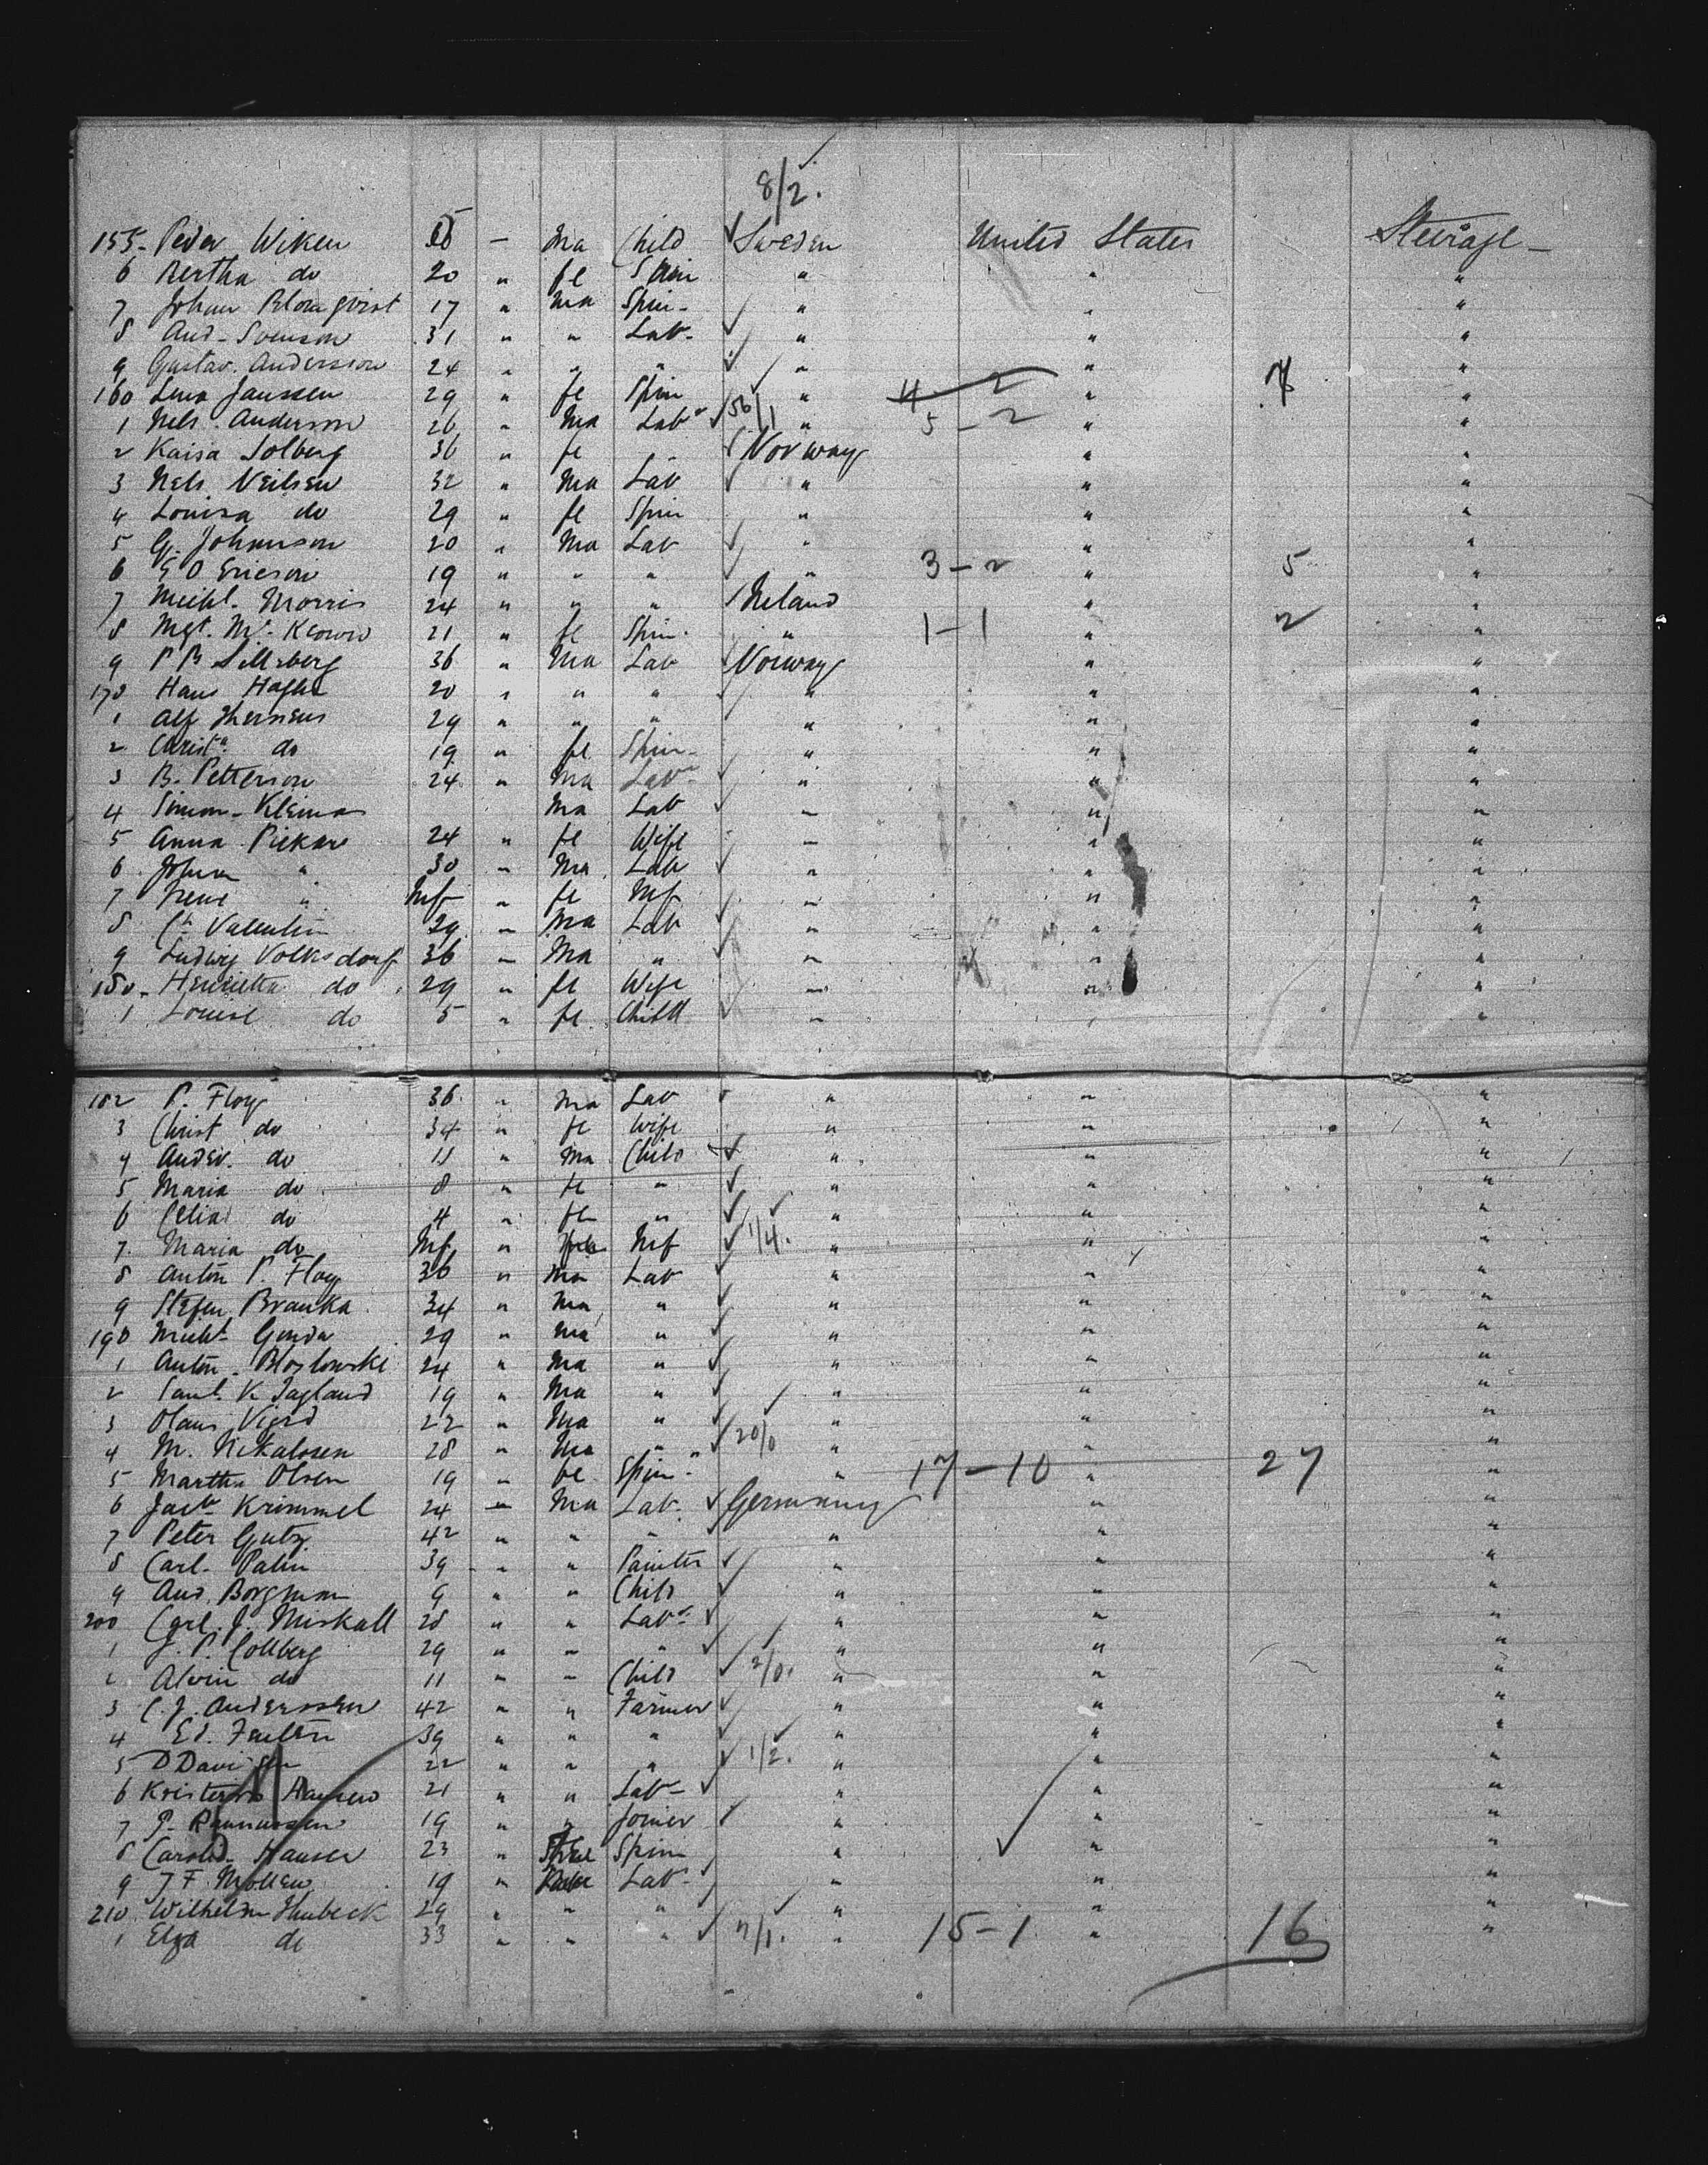 8/2.
155- Peder Wiken — Ma Child Sweden United States Steerage —
6 Bertha do 20 " fe Spin " " "
7 Johan Blomqvist 17 " Ma Spin- " " "
8 And- Svenson 31 " " Lab- " " "
9 Gustav. Andersson 24 " " " " " "
160 Lena Janssen 29 " fe Spin " 4 — 2 " 7 "
1 Nels. Anderson 26 " Ma Labr 56/1 " 5 — 2 " "
2 Kaisa Solberg 36 " fe " Norway " "
3 Nels Neilsen 32 " Ma Lab " " "
4 Louisa do 29 " fe Spin " " "
5 G. Johnuson 20 " Ma Lab " " "
6 E O Ericson 19 " " " " 3 — 2 " 5 "
7 Meihl. Morris 24 " " " Ireland " "
8 Mgt. Mc Keown 21 " fe Spin. " 1 — 1 " 2 "
9 P B Sellsberg 36 " Ma Lab Norway " "
170 Hans 20 " " " " " "
1 Alf 29 " " " " " "
2 Christn do 19 " fe Spin- " " "
3 B. Petterson 24 " Ma Labr " " "
4 Simon- Kleina Ma Lab " " "
5 Anna Piekar 24 " fe Wife " " "
6 Johan " 30 " Ma Lab " " "
7 Irene " Inf " fe Inf " " "
8 Ch Valentin 29 " Ma Lab " " "
9 Ludwig Volksdorf 36 " Ma " " " "
180- Henrietta do 29 " fe Wife " " "
1 Louise do 5 " fe Child " " "
182 P. Floy 36 " Ma Lab " " "
3 Christ do 34 " fe Wife " " "
4 Ander. do 11 " Ma Child " " "
5 Maria do 8 " fe " " " "
6 Celia do 4 " fe " " " "
7. Maria do Inf " Inf 1/4. " " "
8 Anton P. Floy 36 " Ma Lab " " "
9 Stefen Branka 34 " Ma " " " "
190 Michl Gonda 29 " Ma " " " "
1 Anton. Bloslowski 24 " Ma " " " "
2 Saml. K Tagland 19 " Ma " " " "
3 Olaus Vigsd 22 " Ma " " " "
4 M. Nikalosen 28 " Ma " 20/0 " " "
5 Martha Olsen 19 " fe Spin- " 17 — 10 " 27 "
6 Jacb Krimmel 24 — Ma Lab. Germany " "
7 Peter Gutz 42 " " " " " "
8 Carl- Palin 39 " " Painter " " "
9 And. Borgman 9 " " Child " " "
200 Carl. J. Miskall 28 " " Labr " " "
1 J. P. Collberg 29 " " " " " "
2 Alvin do 11 " " Child 2/0. " " "
3 C. J. Anderssen 42 " " Farmer " " "
4 Ed. 39 " " " " " "
5 D Davi 22 " " " 1/2. " " "
6 Hansen 21 " " Lab- " " "
7 P- Rasmussen 19 " " Joiner " " "
8 Hansen 23 " Spin " " "
9 J F. Mollew 19 " Lab- " " "
210 Wilhelm Hubeck 29 " " " " " "
1 Elza do 33 " " " 7/1. " 15 — 1 " 16 "